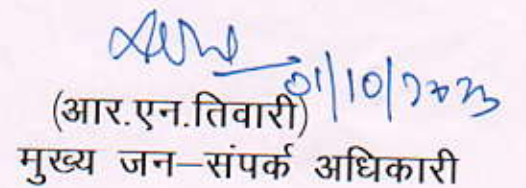 01/10/2023
(आर.एन.तिवारी)
मुख्य जन–संपर्क अधिकारी